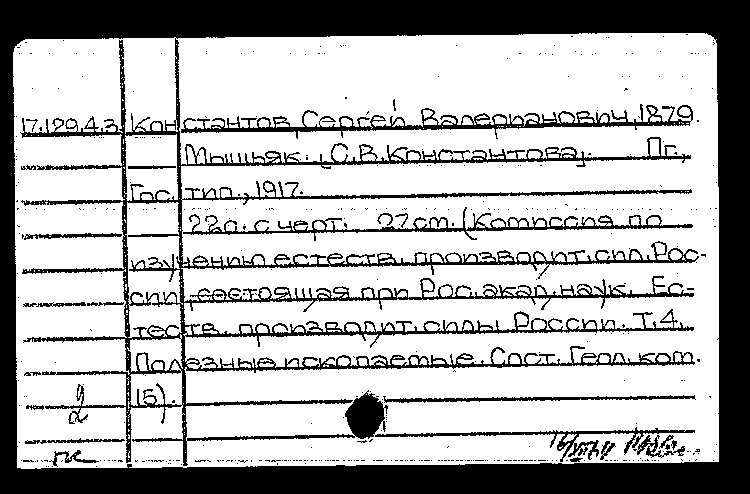 17.129.4.3. Константов, Сергей Валерианович, 1879.
Мышьяк. [С.В.Константова]. Пг.,
Гос. тип., 1917.
22с. с черт. 27см. (Комиссия по
изучению естеств. производит. сил Рос-
сии, состоящая при Рос. акад. наук. Ес-
теств. производит. силы России. Т.4.
Полезные ископаемые. Сост. Геол. ком.
15).
2